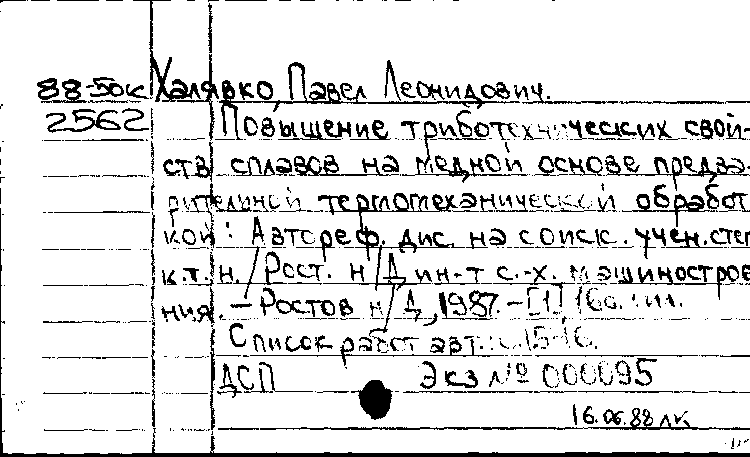 88-50к Халявко, Павел Леонидович.
2562 Повышение триботехнических свой-
ств сплавов на медной основе предва-
рительной термомеханической обработ
кой : Автореф. дис. на соиск. учен. степ
к.т.н. / Рост. н/Д ин-т с.-х. машинострое
ния. — Ростов н/Д, 1987. - [1] 16с. : ил.
Список работ авт. : с. 15-16.
ДСП Экз № 000095
16.06.88 лк